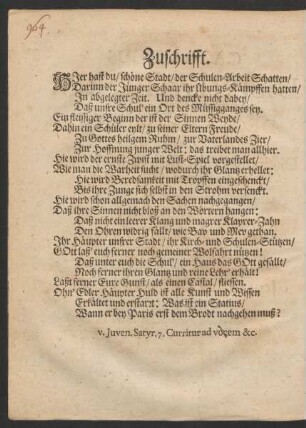 964.
Zuschrifft.
HJer hast du/ schöne Stadt/ der Schulen-Arbeit Schatten/
Darinn der Jünger Schaar ihr übungs-Kämpffen hatten/
Jn abgelegter Zeit. Und dencke nicht dabey/
Daß unsre Schul' ein Ort des Müssigganges sey.
Ein fleissiger Beginn der ist der Sinnen Weyde/
Dahin ein Schüler eylt/ zu seiner Eltern Freude/
Zu Gottes heilgem Ruhm/ zur Vaterlandes Zier/
Zur Hoffnung junger Welt: das treibet man allhier.
Hie wird der ernste Zweck mit Lust-Spiel vorgestellet/
Wie man die Warheit sucht/ wodurch ihr Glantz erhellet:
Hie wird Beredsamkeit mit Tropffen eingeschenckt/
Bis ihre Zunge sich selbst in den Strohm versenckt.
Hie wird schon allgemach den Sachen nachgegangen/
Daß ihre Sinnen nicht bloß an den Wörtern hangen:
Daß nicht ein leerer Klang und magrer Klapper-Zahn
Den Ohren widrig fällt/ wie Bav und Mev gethan.
Jhr Häupter unsrer Stadt/ ihr Kirch- und Schulen-Stützen/
GOtt laß' euch ferner noch gemeiner Wolfahrt nützen!
Daß unter euch die Schul'/ ein Haus das GOtt gefällt/
Noch ferner ihren Glantz und reine Lehr' erhält!
Laßt ferner Eure Gunst/ als einen Castal/ fliessen.
Ohn' Edler Häupter Huld ist alle Kunst und Wissen
Erkältet und erstarrt: Was ist ein Statius/
Wann er bey Paris erst dem Brodt nachgehen muß?
v. Juven. Satyr. 7. Curritur ad vocem &c.